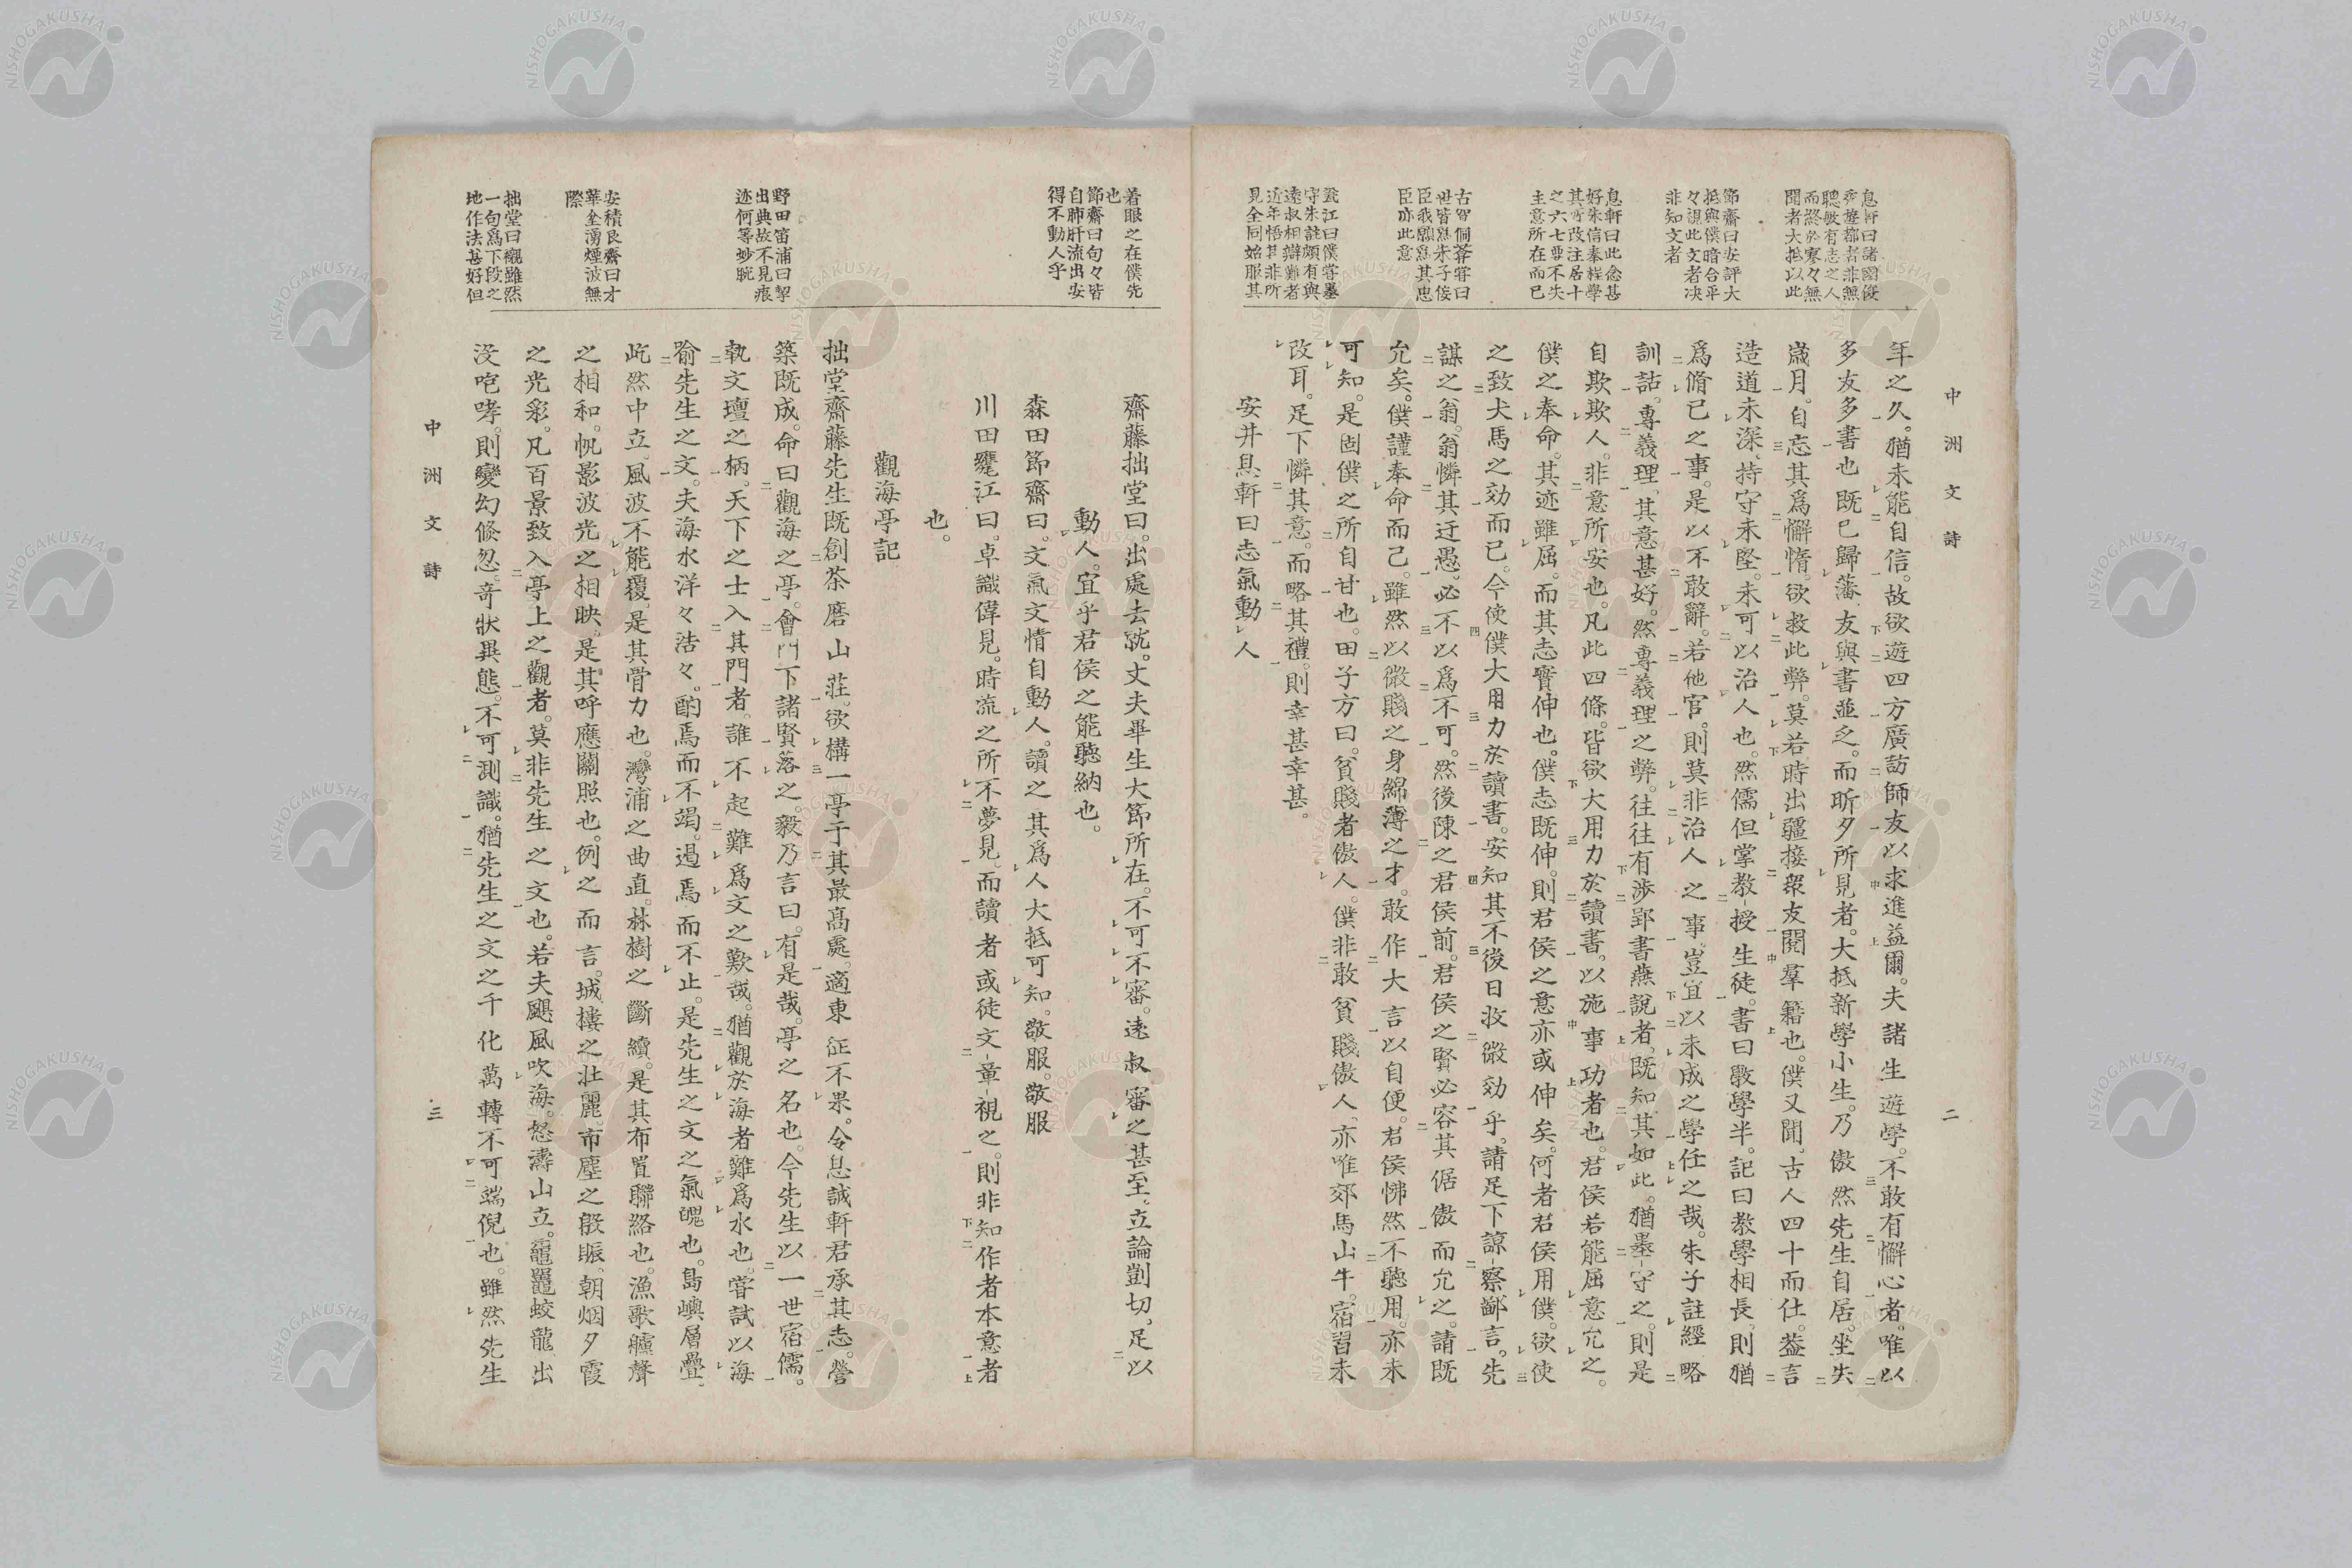 中洲文詩
二
息軒曰諸國俊
秀遊都者非無
聰敏有志之人
而終於寥々無
聞者大抵以此
節齋曰安評大
抵與僕暗合平
々視此文者决
非知文者
息軒曰此愈甚
好朱信奉程學
其所改注居十
之六七要不失
主意所在而已
古賀侗菴嘗曰
世皆爲朱子佞
臣我願爲其忠
臣亦此意
甕江曰僕嘗墨
守朱註頗有與
遠叔相辯難者
近年悟其非所
見全同始服其
年之久。猶未能自信。故欲遊四方廣訪師友以求進益爾。夫諸生遊學。不敢有懈心者。唯以
多友多書也既已歸藩、友與書並乏。而昕夕所見者。大抵新學小生。乃傲然先生自居。坐失
歲月。自忘其爲懈惰。欲救此弊。莫若時出疆接衆友閱羣籍也。僕又聞、古人四十而仕。葢言
造道未深、持守未堅。未可以治人也。然儒但掌敎授生徒。書曰斅學半。記曰敎學相長、則猶
爲脩己之事。是以不敢辭。若他官。則莫非治人之事。豈宜以未成之學任之哉。朱子註經略
訓詁。專義理、其意甚好。然專義理之弊。往往有涉郢書燕說者、既知其如此。猶墨守之。則是
自欺欺人。非意所安也。凡此四條。皆欲大用力於讀書。以施事功者也。君侯若能屈意允之。
僕之奉命。其迹雖屈。而其志實伸也。僕志既伸。則君侯之意亦或伸矣。何者君侯用僕。欲使
之致犬馬之効而已。今使僕大用力於讀書。安知其不後日收微効乎。請足下諒察鄙言。先
謀之翁。翁憐其迂愚。必不以爲不可。然後陳之君侯前。君侯之賢必容其倨傲而允之。請既
允矣。僕謹奉命而已。雖然以微賤之身綿薄之才。敢作大言以自便。君侯怫然不聽用。亦未
可知。是固僕之所自甘也。田子方曰。貧賤者傲人。僕非敢貧賤傲人、亦唯郊馬山牛。宿習未
改耳。足下憐其意。而略其禮。則幸甚幸甚。
安井息軒曰志氣動人
着眼之在僕先
也
節齋曰句々皆
自肺肝流出安
得不動人乎
野田笛浦曰挈
出典故不見痕
迹何等妙腕
安積艮齋曰才
華全湧煙波無
際
拙堂曰襯雖然
一句爲下段之
地作法甚好但
齋藤拙堂曰。出處去就。丈夫畢生大節所在。不可不審。遠叔審之甚至。立論剴切。足以
動人。宜乎君侯之能聽納也。
森田節齋曰。文氣文情自動人。讀之其爲人大抵可知。敬服。敬服
川田甕江曰。卓識偉見。時流之所不夢見。而讀者或徒文章視之。則非知作者本意者
也。
觀海亭記
拙堂齋藤先生既創茶磨山莊。欲構一亭于其最高處。適東征不果。令息誠軒君承其志。營
築既成。命曰觀海之亭。會門下諸賢落之。毅乃言曰。有是哉。亭之名也。今先生以一世宿儒。
執文壇之柄。天下之士入其門者。誰不起難爲文之歎哉。猶觀於海者難爲水也。嘗試以海
喻先生之文。夫海水洋々浩々。酌焉而不竭。過焉而不止。是先生之文之氣魄也。島嶼層疊。
屹然中立。風波不能覆。是其骨力也。灣浦之曲直。林樹之斷續。是其布置聯絡也。漁歌艫聲
之相和。帆影波光之相映。是其呼應關照也。例之而言。城樓之壯麗。市塵之殷賑。朝烟夕霞
之光彩。凡百景致入亭上之觀者。莫非先生之文也。若夫颶風吹海。怒濤山立。黿鼉蛟龍出
沒咆哮。則變幻倏忽。奇狀異態。不可測識。猶先生之文之千化萬轉不可端倪也。雖然先生
中洲文詩
三